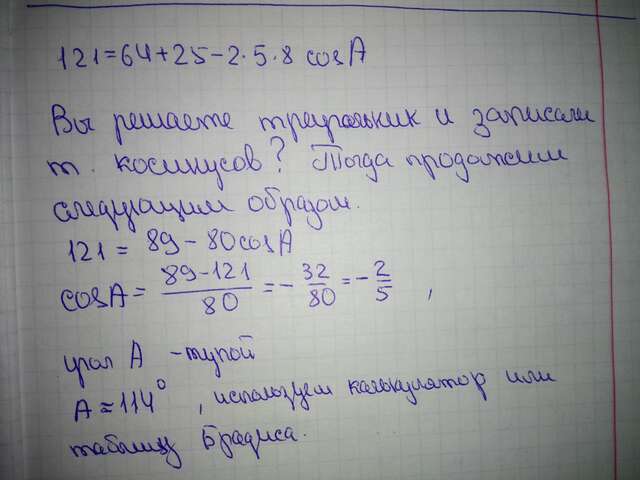 121=64+25-2·5·8 cosA
Вы решаете треугольник и записали
т. косинусов? Тогда продолжим
следующим образом.
121 = 89 - 80cosA
cosA = 89-121/80 = - 32/80 = - 2/5 ,
угол A - тупой
A ≈ 114° , используем калькулятор или
таблицу Брадиса.